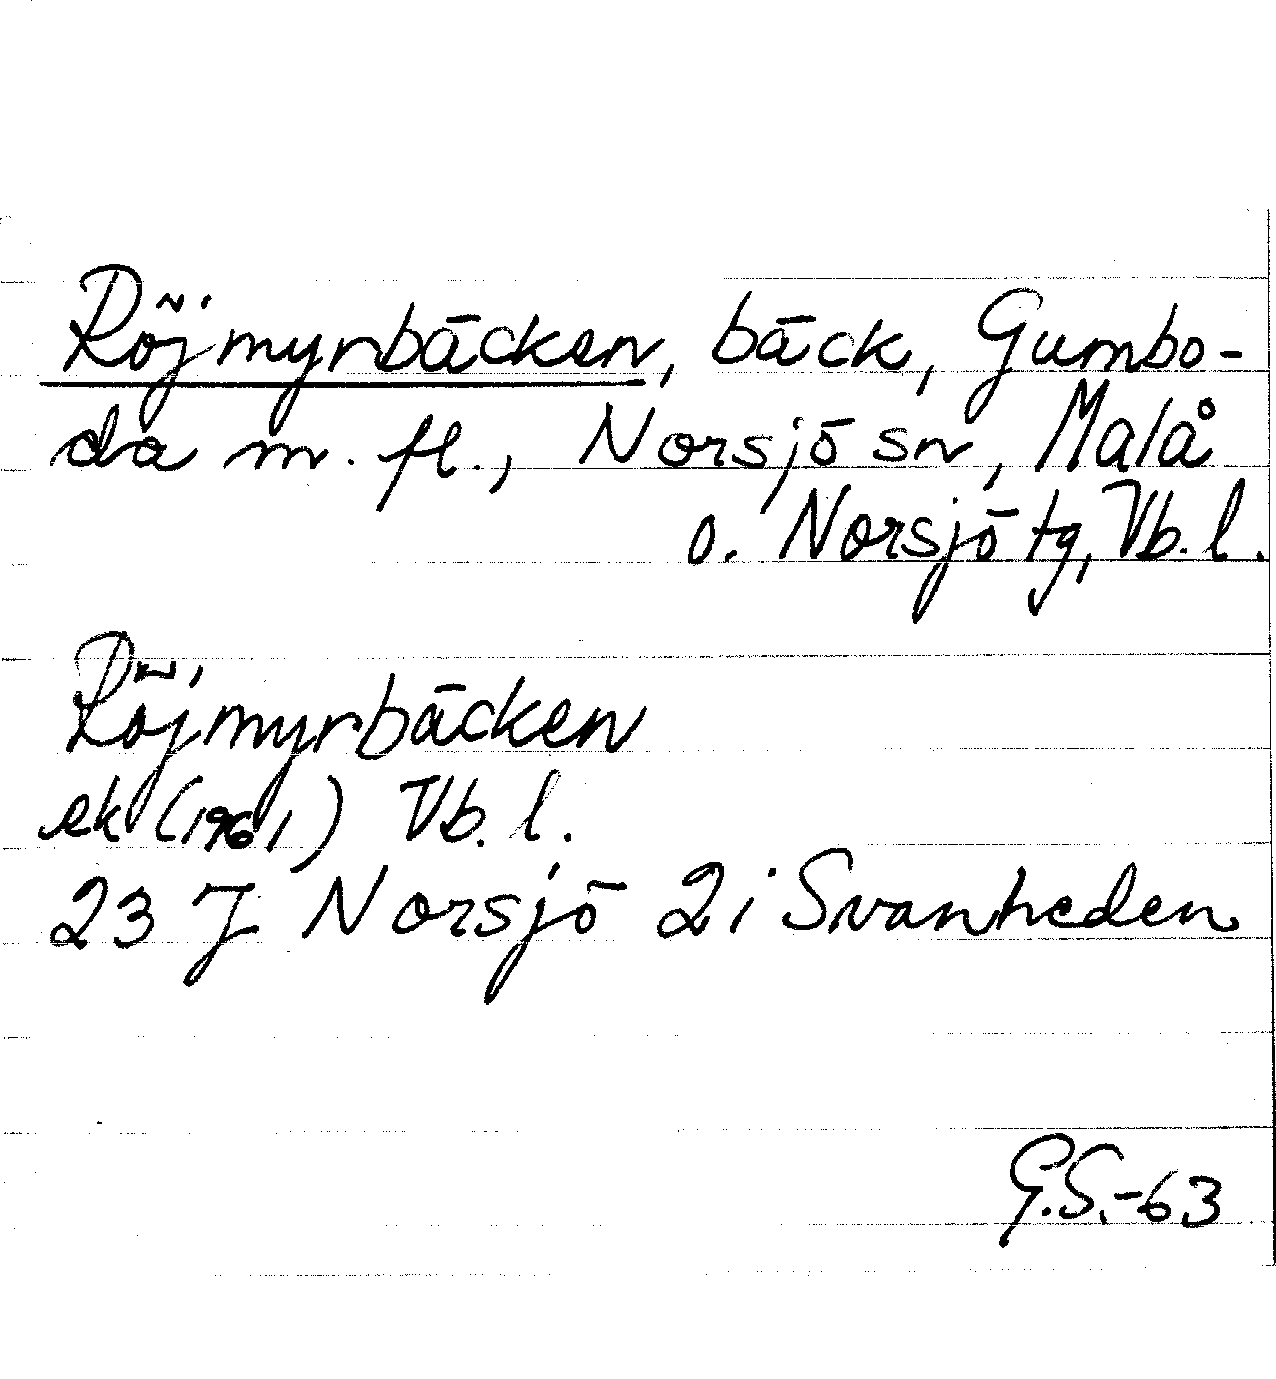 Röjmyrbäcken, bäck, Gumbo-
da m. fl., Norsjö sn, Malå
o. Norsjö tg, Vb. l.
Röjmyrbäcken
ek (1961) Vb. l.
23 J Norsjö 2i Svanheden
G.S.-63